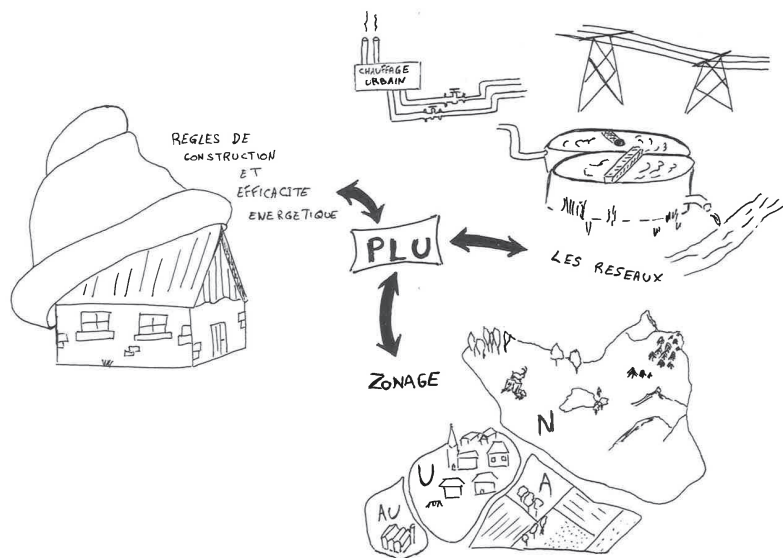 CHAUFFAGE
URBAIN
REGLES DE
CONSTRUCTION
ET
EFFICACITE
ENERGETIQUE
PLU
LES RESEAUX
ZONAGE
N
U
A
AU